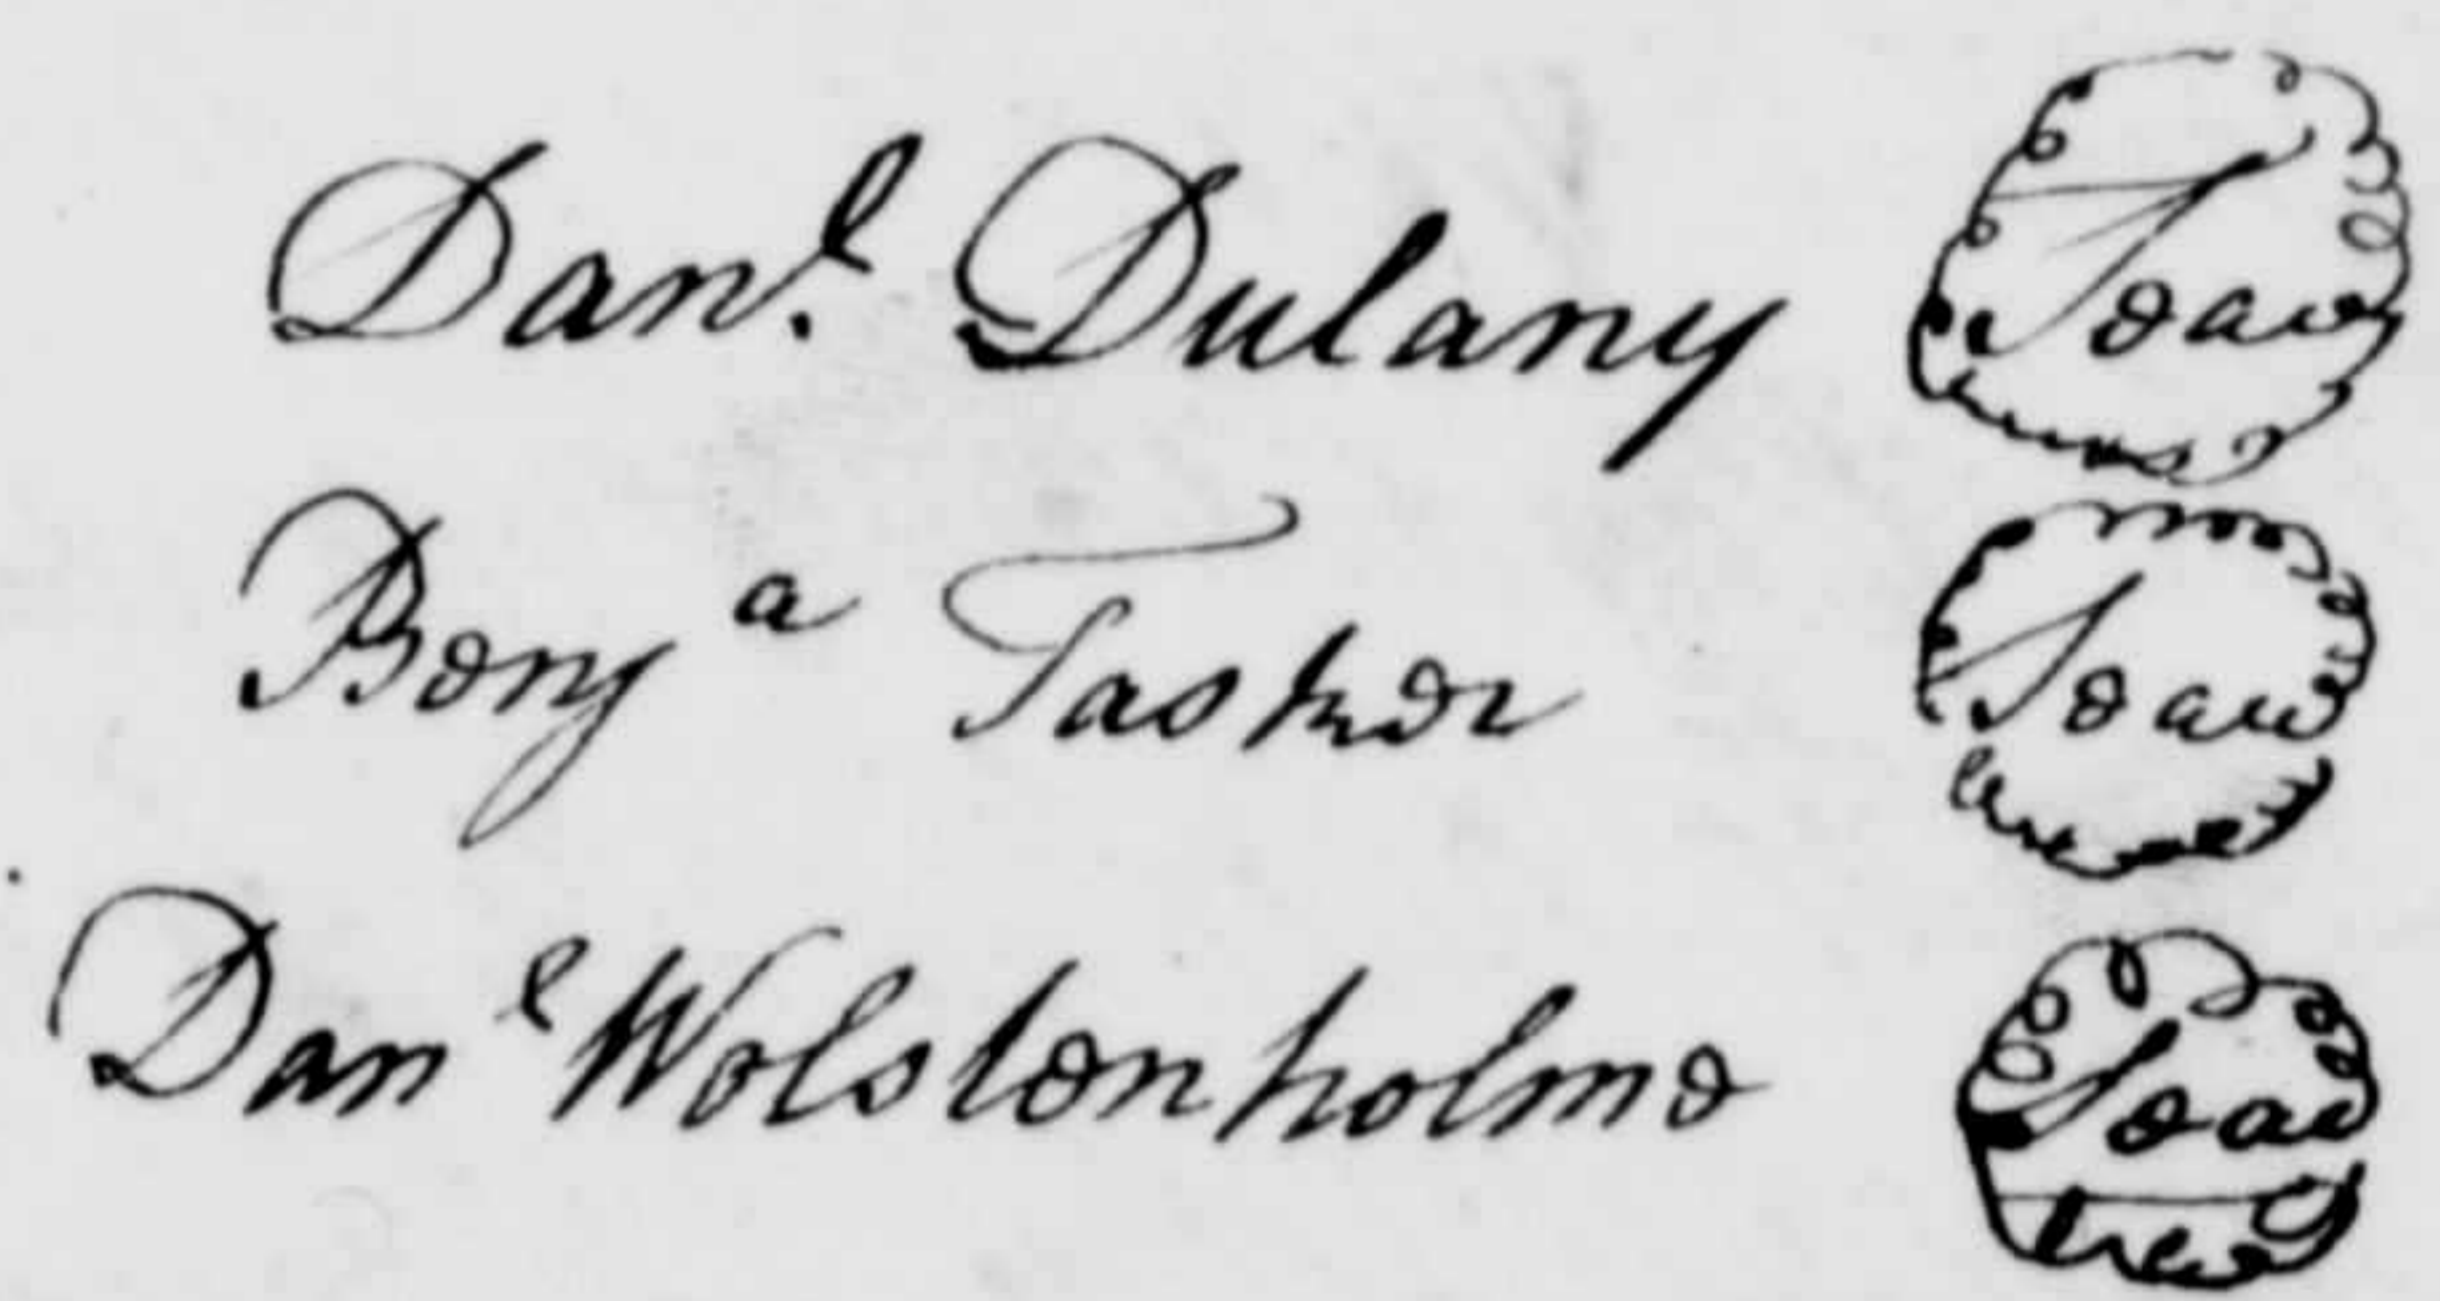 Dan.l Dulany Seal
Benj a Tasker Seal
Dan l Wolstenholme Seal